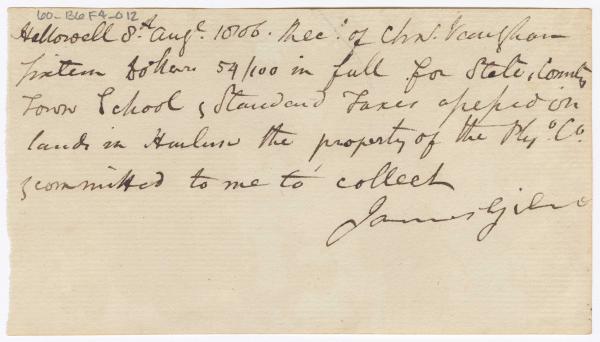 60-B6F4-012
Hallowell 8th Augt. 1806. Recd. of Chas. Vaughan
sixteen Dollars 54/100 in full for State, County
Town School & Standard Taxes assessed on
lands in Harlem the property of the Plyo. Co.
& committed to me to collect
James